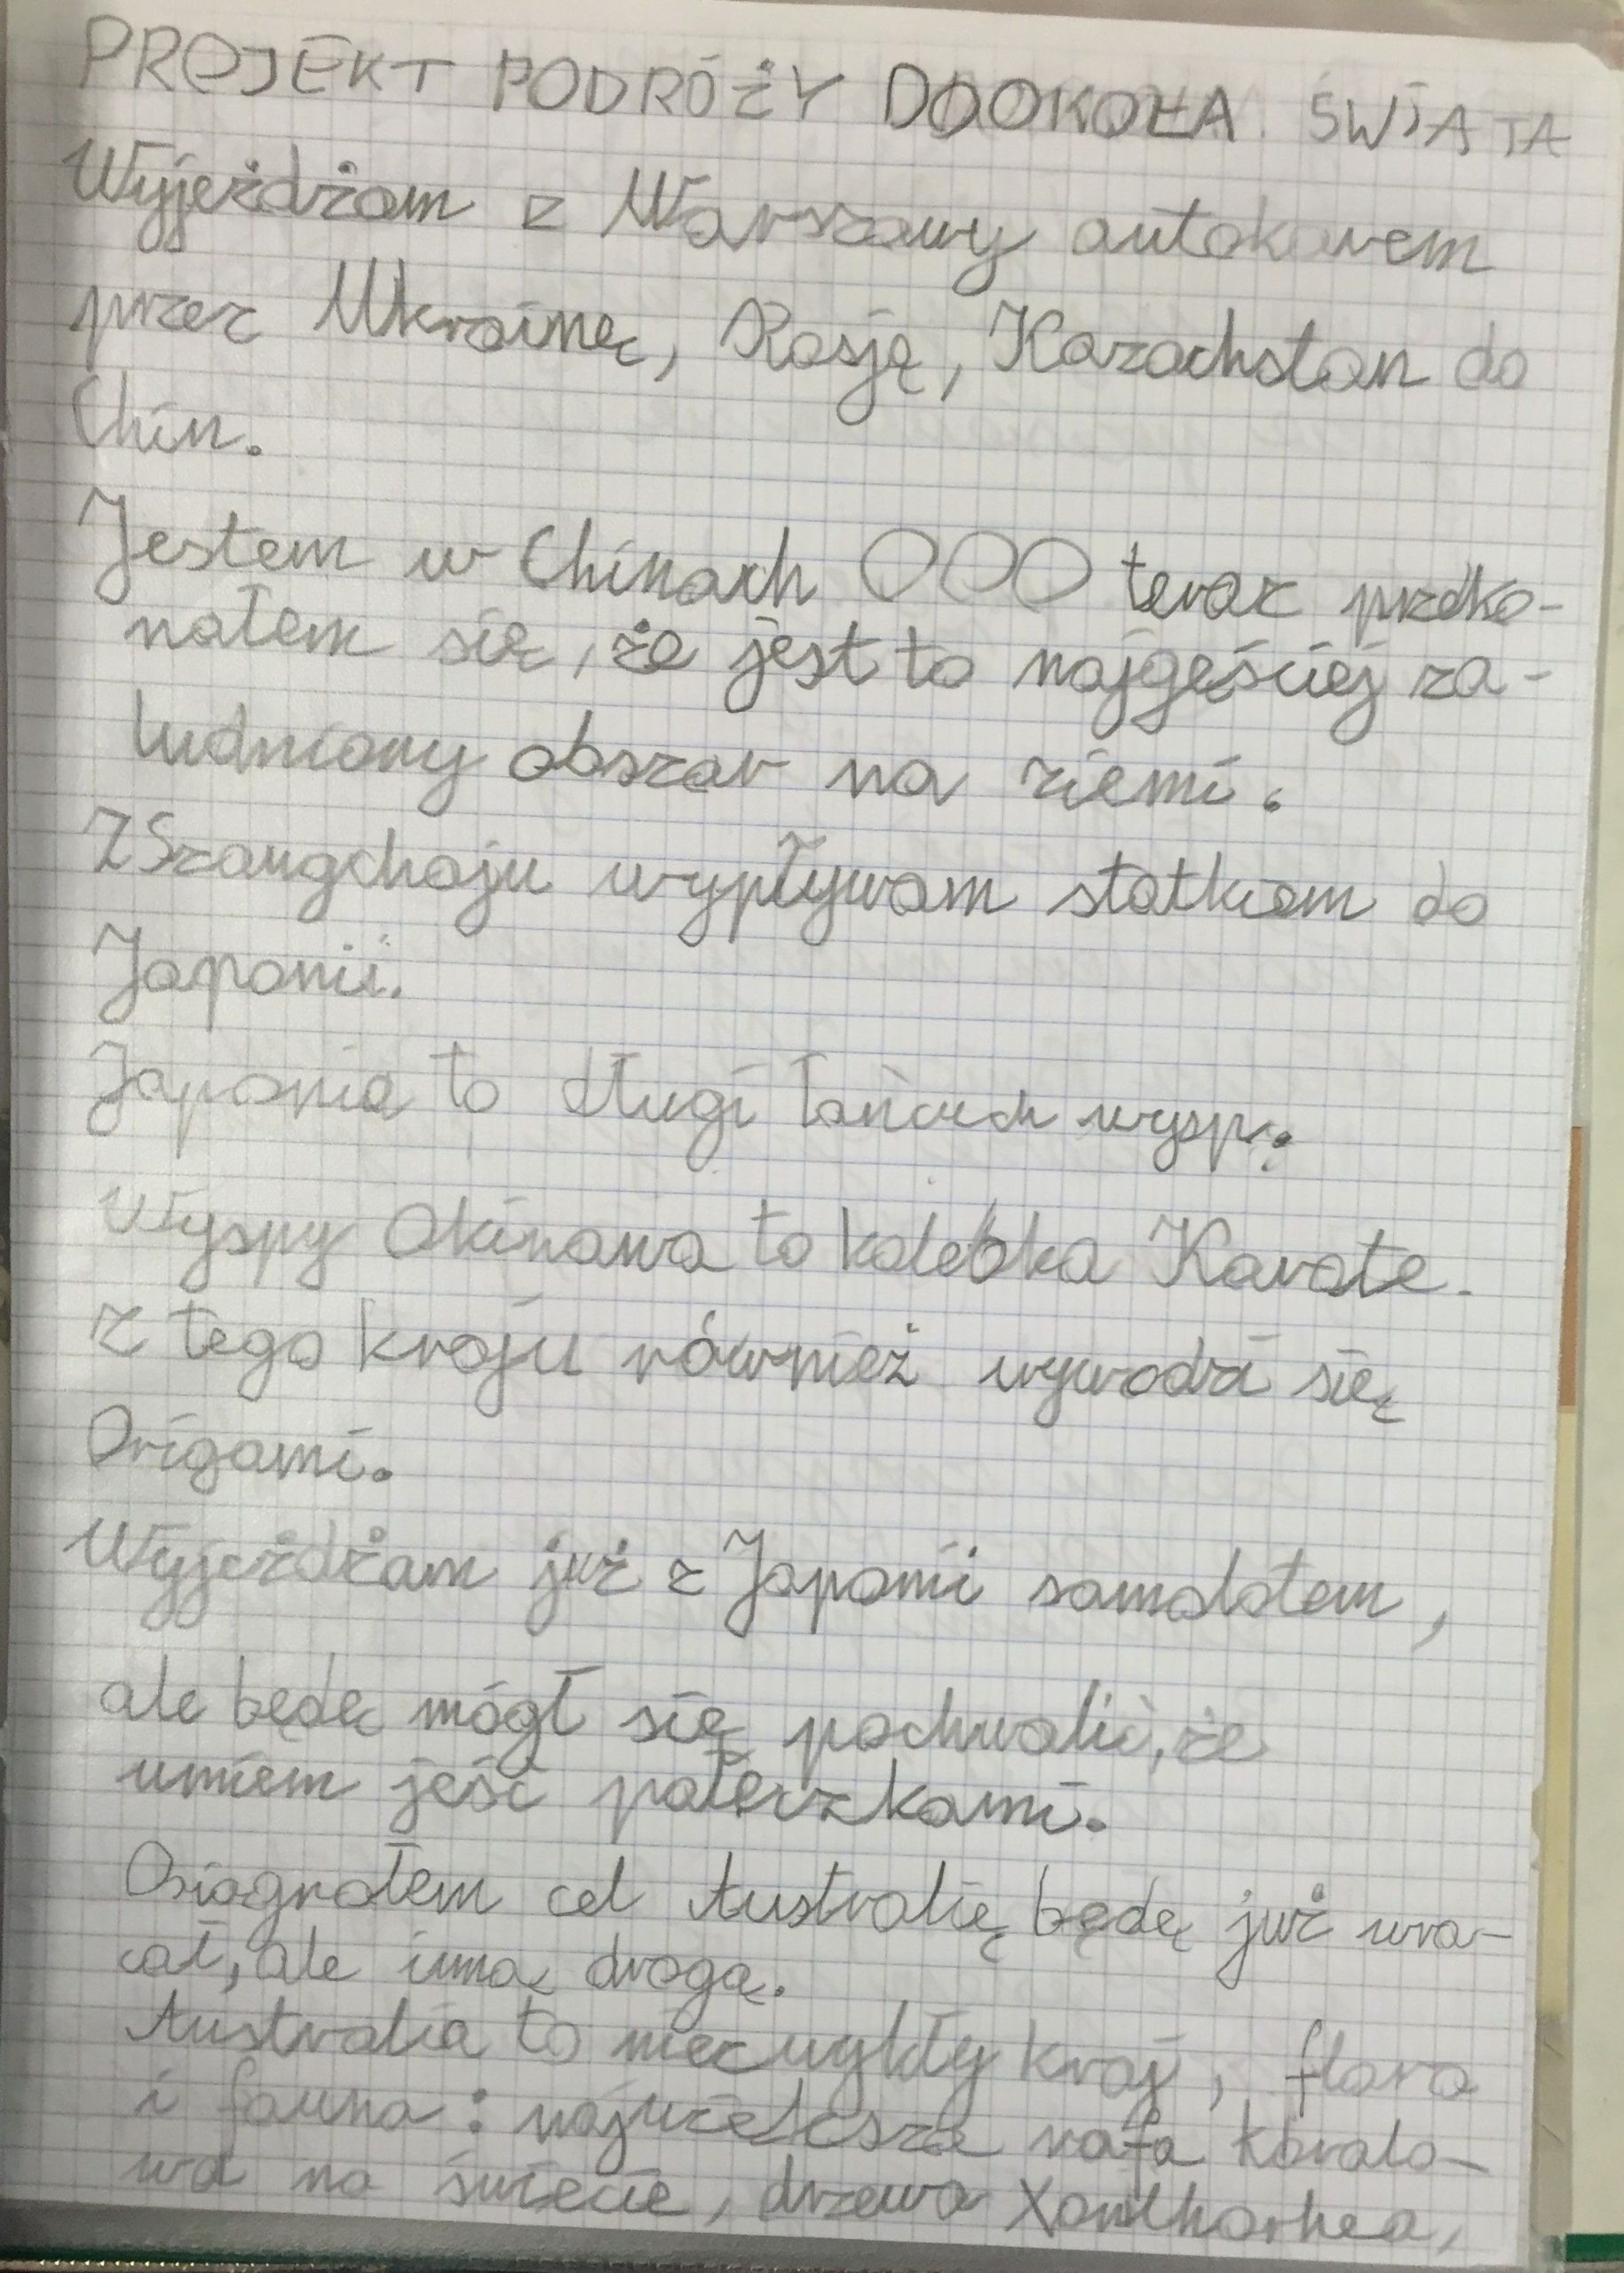 PROJEKT PODRÓŻY DOOKOŁA ŚWIATA
Wyjeżdżam z Warszawy autokarem
przez Ukrainę, Rosję, Kazachstan do
Chin.
Jestem w Chinach OOO teraz przeko-
nałem się, że jest to najgęściej za-
ludniony obszar na ziemi.
Z Szangchaju wypływam statkiem do
Japonii.
Japonia to długi łańcuch wysp.
Wyspy Okinawa to kolebka Karate.
z tego kraju również wywodzi się
Origami.
Wyjeżdżam już z Japonii samolotem,
ale będę mógł się pochwalić, że
umiem jeść pałeczkami.
Osiągnąłem cel Australię będę już wra-
cał, ale inną drogą.
Australia to niezwykły kraj, flora
i fauna: największa rafa koralo-
wa na świecie, drzewa Xanthorhea,